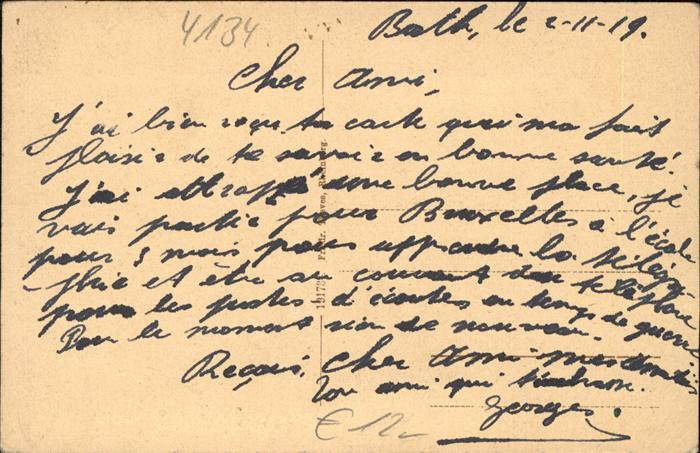 4134
Bath, le 2-11-19.
Cher Ami,
J'ai bien reçu ta carte qui ma fait
plaisir de te savoir en bonne santé.
J'ai attrappé une bonne place, je
vais partir pour Bruxelles à l'école
pour 3 mois pour apprendre la télégra
phie et être au courant du téléphone
pour les postes d'écoutes en temps de guerre.
Pour le moment rien de nouveau.
Reçois, cher Ami mes amitiés
Ton ami qui
Georges.
€ 12,-